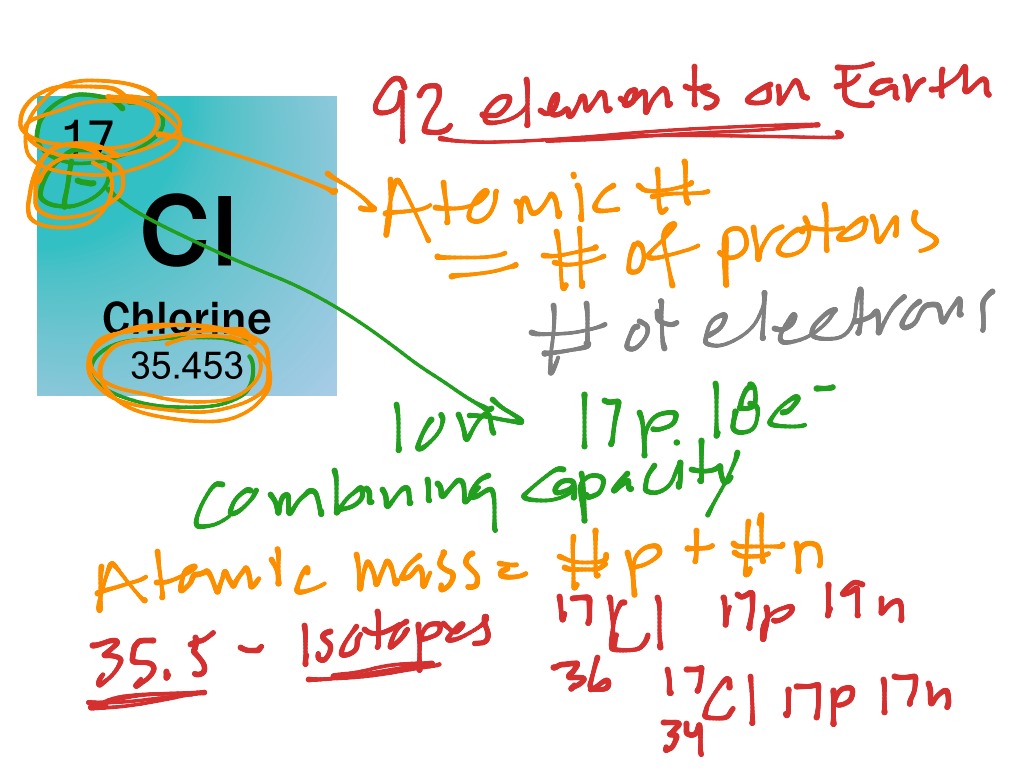 92 elements on Earth
17
1-
Cl
Chlorine
35.453
Atomic #
= # of protons
# of electrons
Ion 17p. 18e⁻
Combining Capacity
Atomic mass = #p + #n
35.5 - Isotopes
17 Cl 17p 19n
36
17 Cl 17p 17n
34